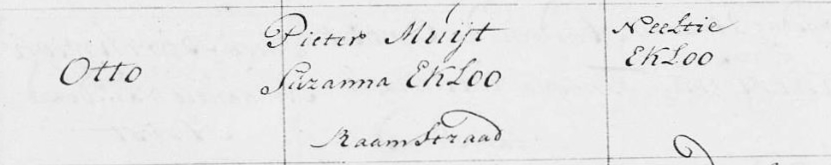 Otto
Pieter Muijt
Suzanna Ekloo
Raamstraad
Neeltie
Ekloo